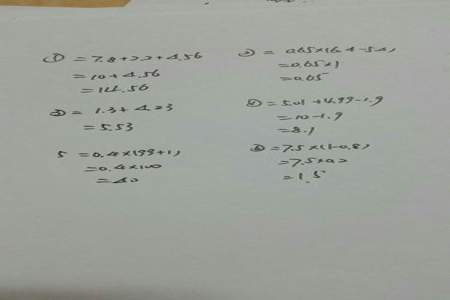 ① = 7.8+2.2+4.56
= 10+4.56
= 14.56
② = 0.65×(6.4-5.4)
= 0.65×1
= 0.65
③ = 1.3+4.23
= 5.53
④ = 5.01+4.99-1.9
= 10-1.9
= 8.1
5 = 0.4×(99+1)
= 0.4×100
= 40
⑥ = 7.5×(1-0.8)
= 7.5×0.2
= 1.5